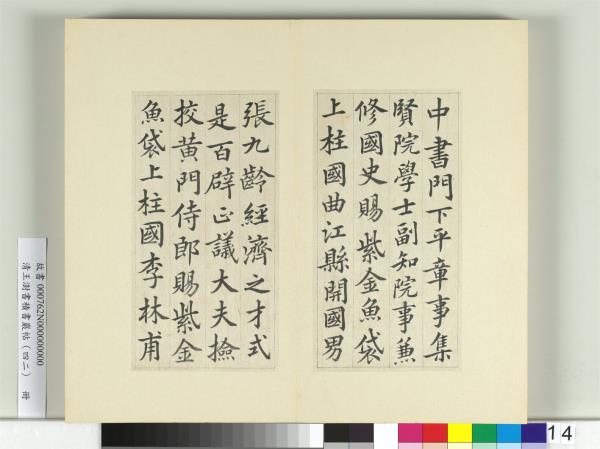 中書門下平章事集
賢院學士副知院事兼
修國史賜紫金魚袋
上柱國曲江縣開國男
張九齡經濟之才式
是百辟正議大夫撿
挍黃門侍郎賜紫金
魚袋上柱國李林甫
故書 000762N000000000
清王澍書積書巖帖（四二） 冊
14